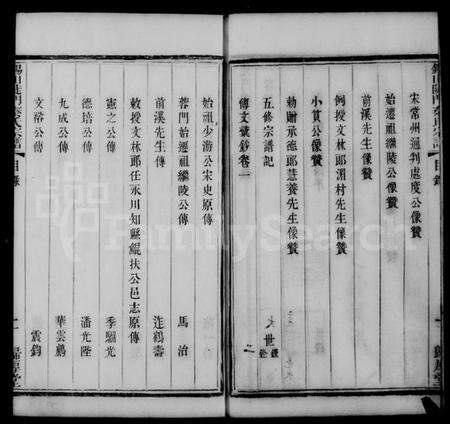 宋常州通判處度公像贊
始遷祖繼陵公像贊
前溪先生像贊
例授文林郎湄村先生像贊
小貫公像贊
勅贈承德郎慧養先生像贊
五修宗譜記
傳文號鈔卷一
目錄
始祖少游公宋史原傳
蓉門始遷祖繼陵公傳 馬治
前溪先生傳 連鶴壽
敕授文林郎任永川知縣鯤扶公邑志原傳
憲之公傳 季騮光
德培公傳 潘光陞
九成公傳 華雲鵬
文裕公傳 震鈞
目錄
二
歸厚堂
FamilySearch